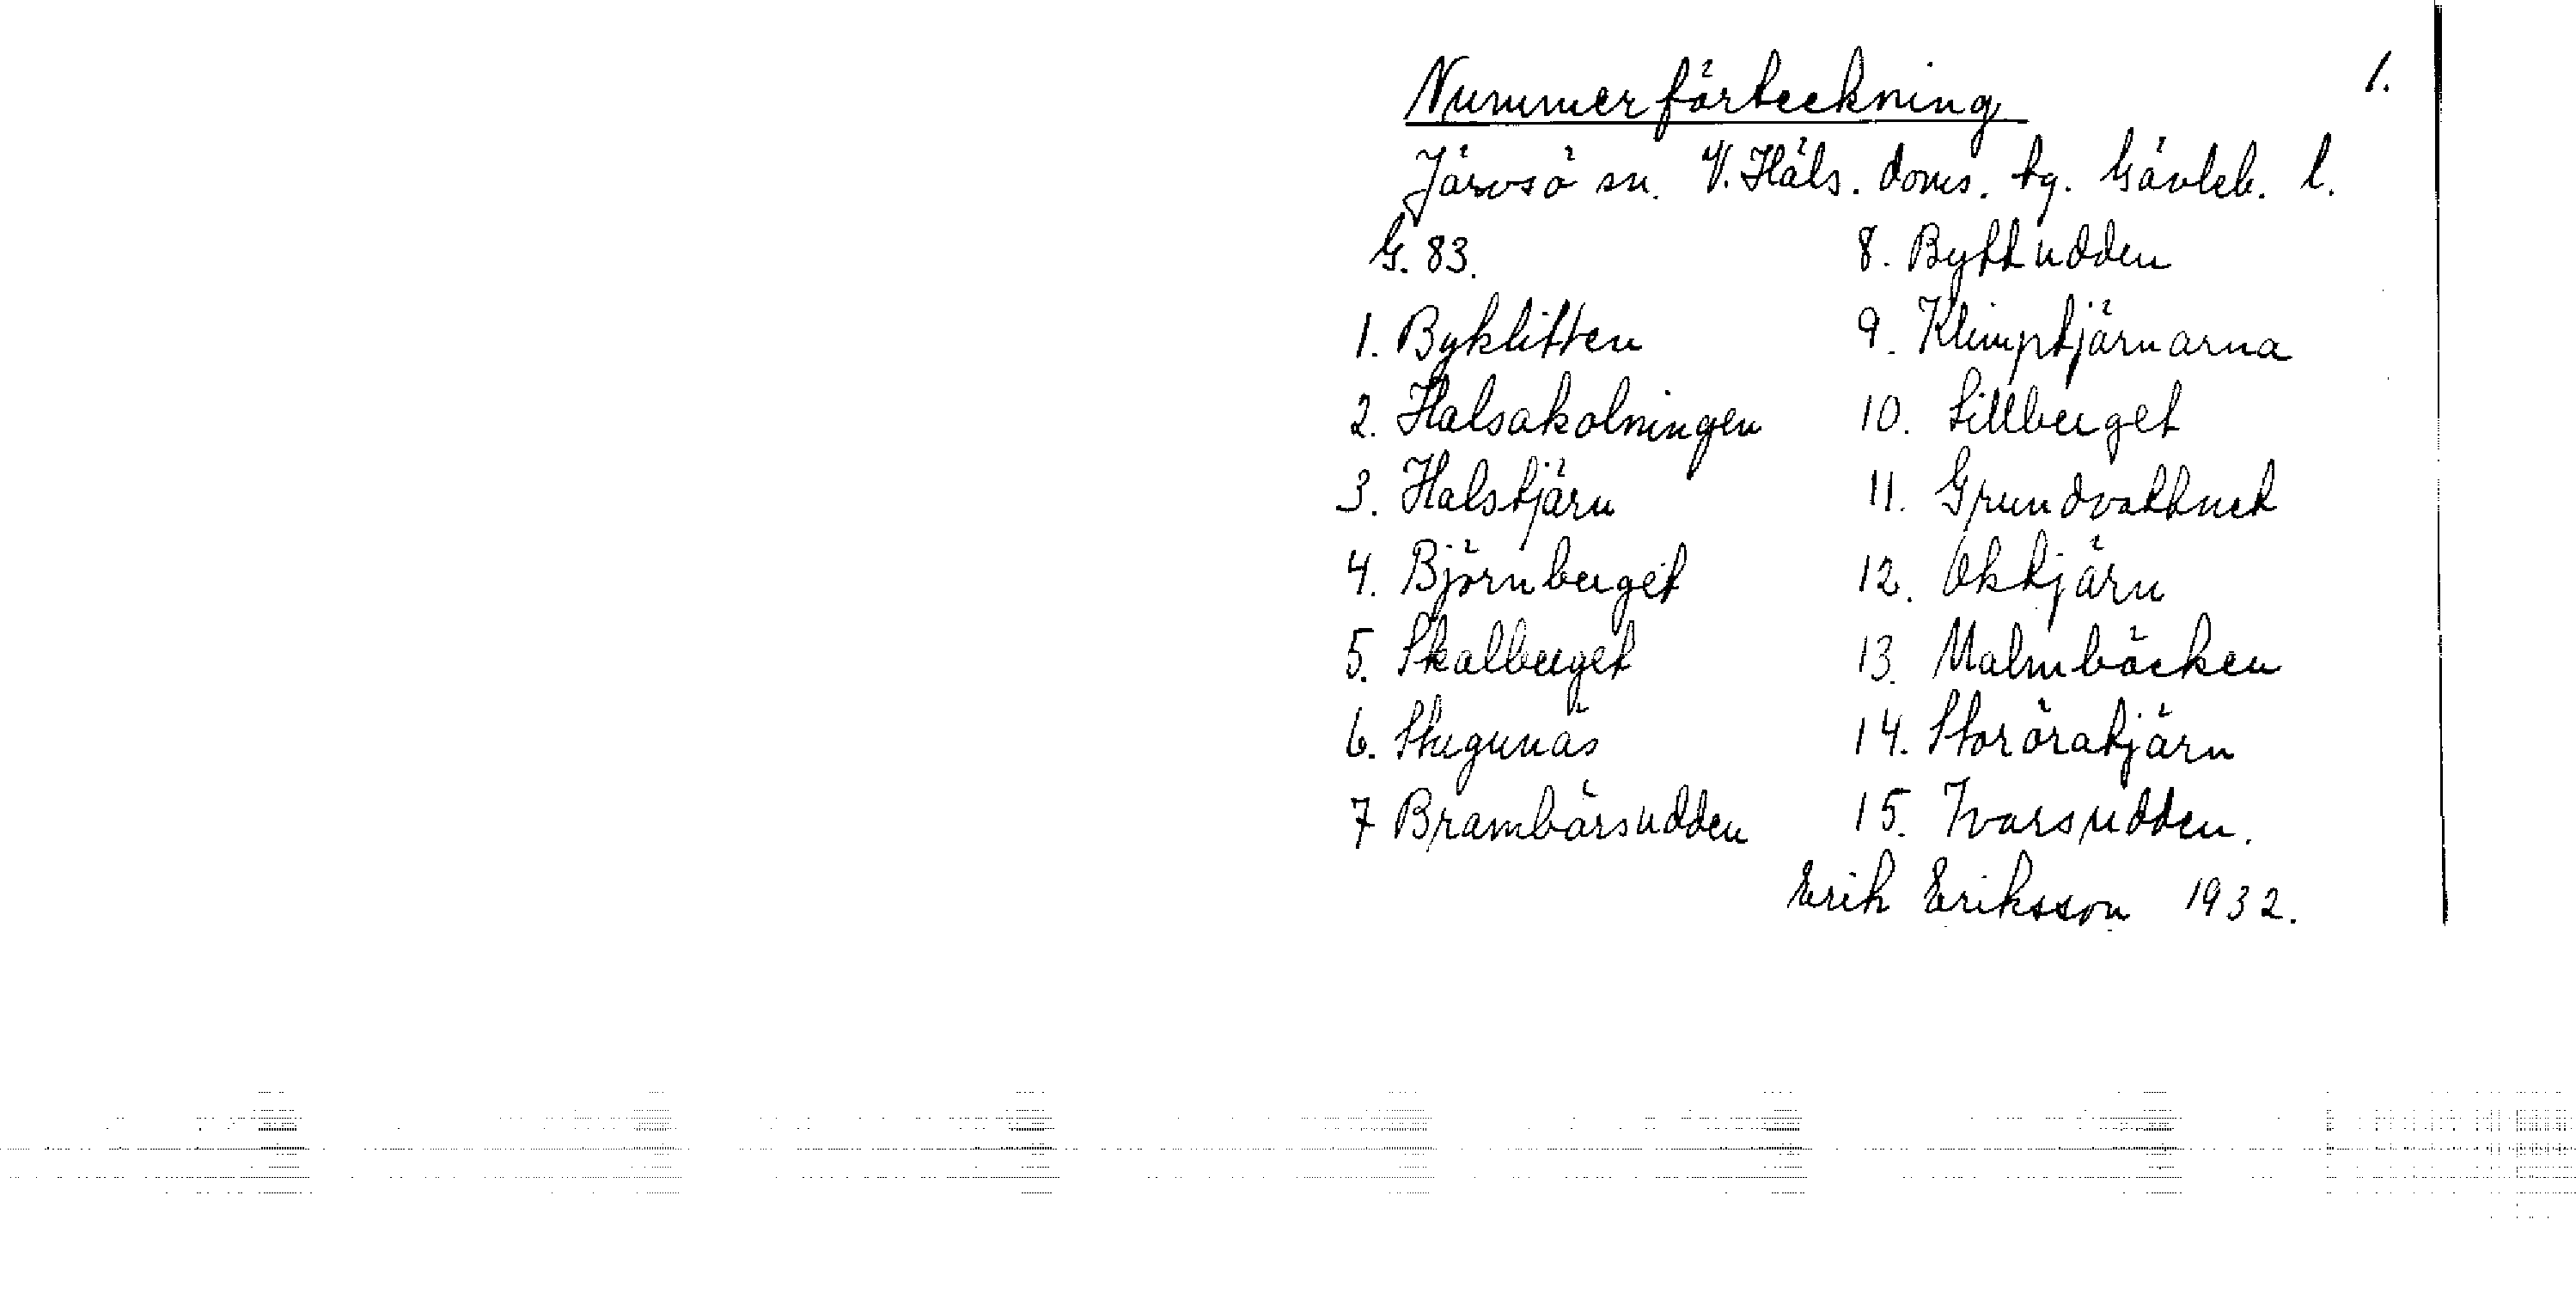 1.
Nummerförteckning
Järvsö sn. V. Häls. doms. tg. Gävleb. l.
G. 83.
1. Byklitten
2. Halsakolningen
3. Halstjärn
4. Björnberget
5. Skalberget
6. Stugunäs
7 Brambärsudden
8. Byttudden
9. Klimptjärnarna
10. Sillberget
11. Grundvattnet
12. Oktjärn
13. Malmbäcken
14. Storöratjärn
15. Ivarsudden.
Erik Eriksson 1932.